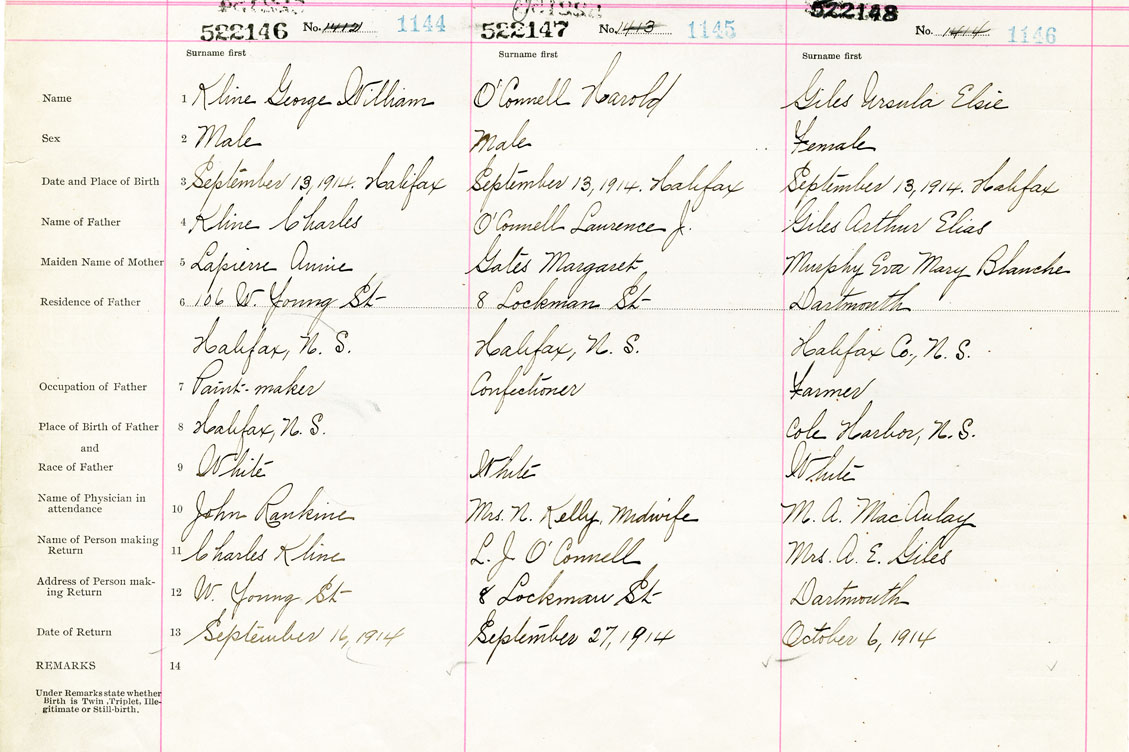 522146 No. 1412 1144 522147 No. 1413 1145 522148 No. 1414 1146
Surname first Surname first Surname first
Name 1 Kline George William O'Connell Harold Giles Ursula Elsie
Sex 2 Male Male Female
Date and Place of Birth 3 September 13, 1914. Halifax September 13, 1914. Halifax September 13, 1914. Halifax
Name of Father 4 Kline Charles O'Connell Laurence J. Giles Arthur Elias
Maiden Name of Mother 5 Lapierre Annie Gates Margaret Murphy Eva Mary Blanche
Residence of Father 6 106 W. Young St 8 Lockman St Dartmouth
Halifax, N. S. Halifax, N. S. Halifax Co., N. S.
Occupation of Father 7 Paint-maker Confectioner Farmer
Place of Birth of Father 8 Halifax, N. S. Cole Harbor, N. S.
and
Race of Father 9 White White White
Name of Physician in
attendance 10 John Rankine Mrs. N. Kelly, Midwife M. A. MacAulay
Name of Person making
Return 11 Charles Kline L. J. O'Connell Mrs. A. E. Giles
Address of Person mak-
ing Return 12 W. Young St 8 Lockman St Dartmouth
Date of Return 13 September 16, 1914 September 27, 1914 October 6, 1914
REMARKS 14
Under Remarks state whether
Birth is Twin, Triplet, Ille-
gitimate or Still-birth.